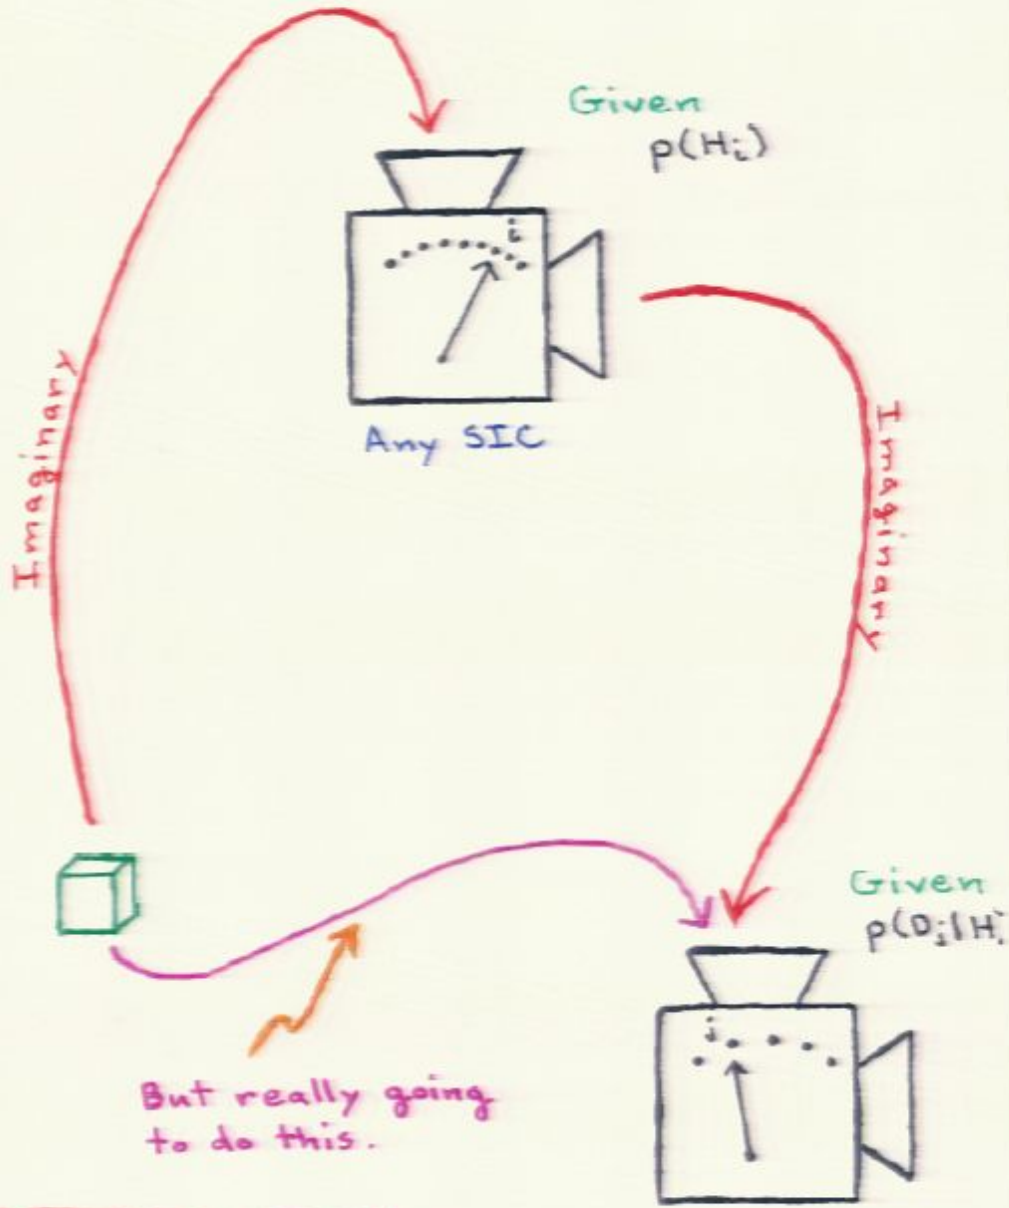 Given
p(Hᵢ)
i
Any SIC
Imaginary
Imaginary
Given
p(Dⱼ|Hᵢ
j
But really going
to do this.